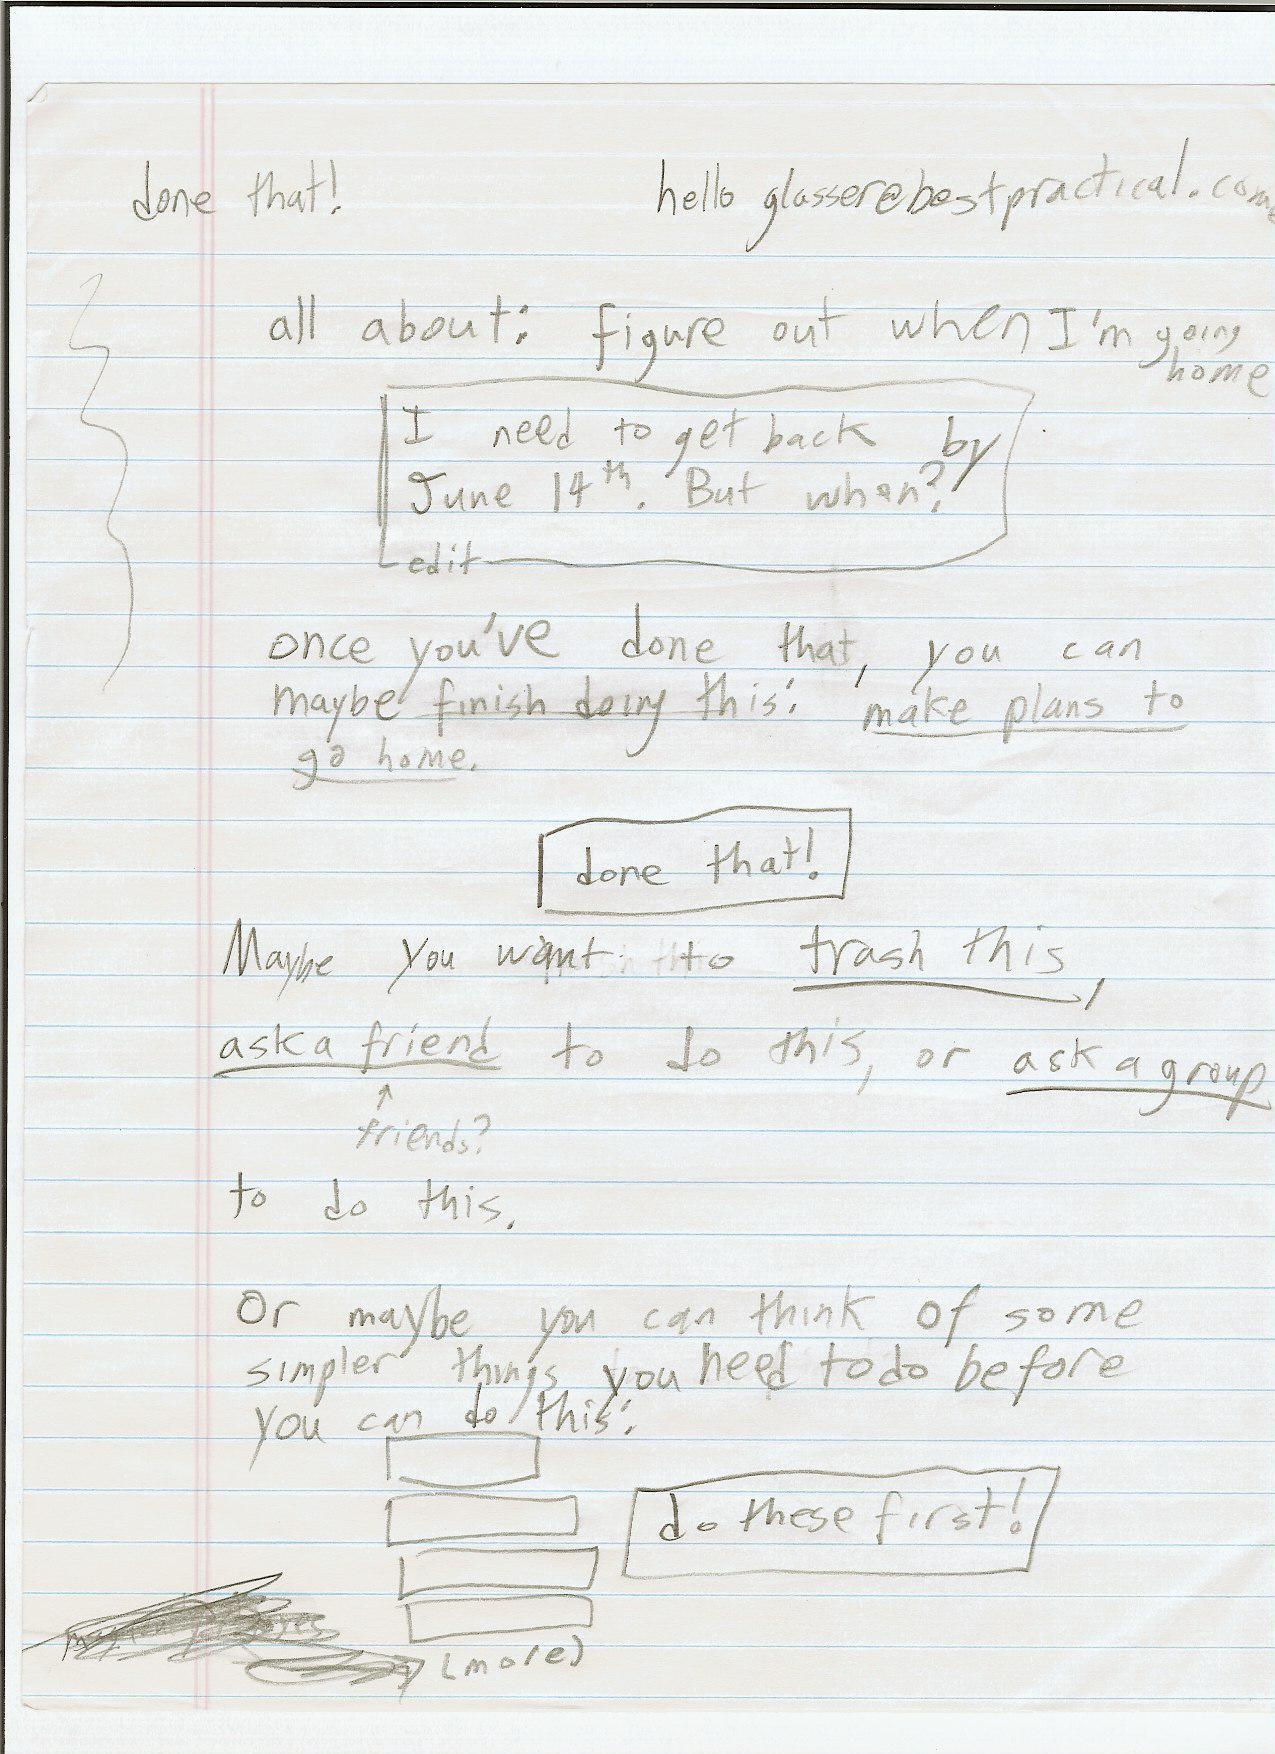 done that! hello glasser@bestpractical.com
all about: figure out when I'm going
home
I need to get back by
June 14th. But when?
edit
once you've done that, you can
maybe finish doing this: make plans to
go home.
done that!
Maybe you want to trash this,
ask a friend to do this, or ask a group
friends?
to do this.
Or maybe you can think of some
simpler things you need to do before
you can do this:
do these first!
(more)